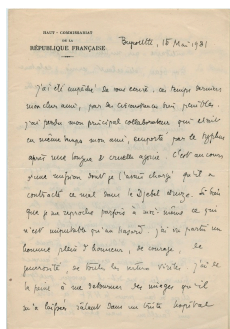 HAUT-COMMISSARIAT
DE LA
RÉPUBLIQUE FRANÇAISE
Beyrouth, 15 Mai 1931
J'ai été empêché de vous écrire, ces temps derniers
mon cher ami, par des circonstances très pénibles.
j'ai perdu mon principal collaborateur qui était
en même temps mon ami, emporté par le typhus
après une longue & cruelle agonie. C'est au cours
d'une mission dont je l'avais chargé qu'il a
contracté ce mal dans le Djebel Druze.
que je me reproche parfois à moi-même ce qui
n'est imputable qu'au hasard. j'ai vu partir un
homme plein d'honneur, de courage, de
générosité, de toutes les vertus viriles. j'ai de
la peine à me détourner des images qu'il
m'a laissées dans un triste hôpital